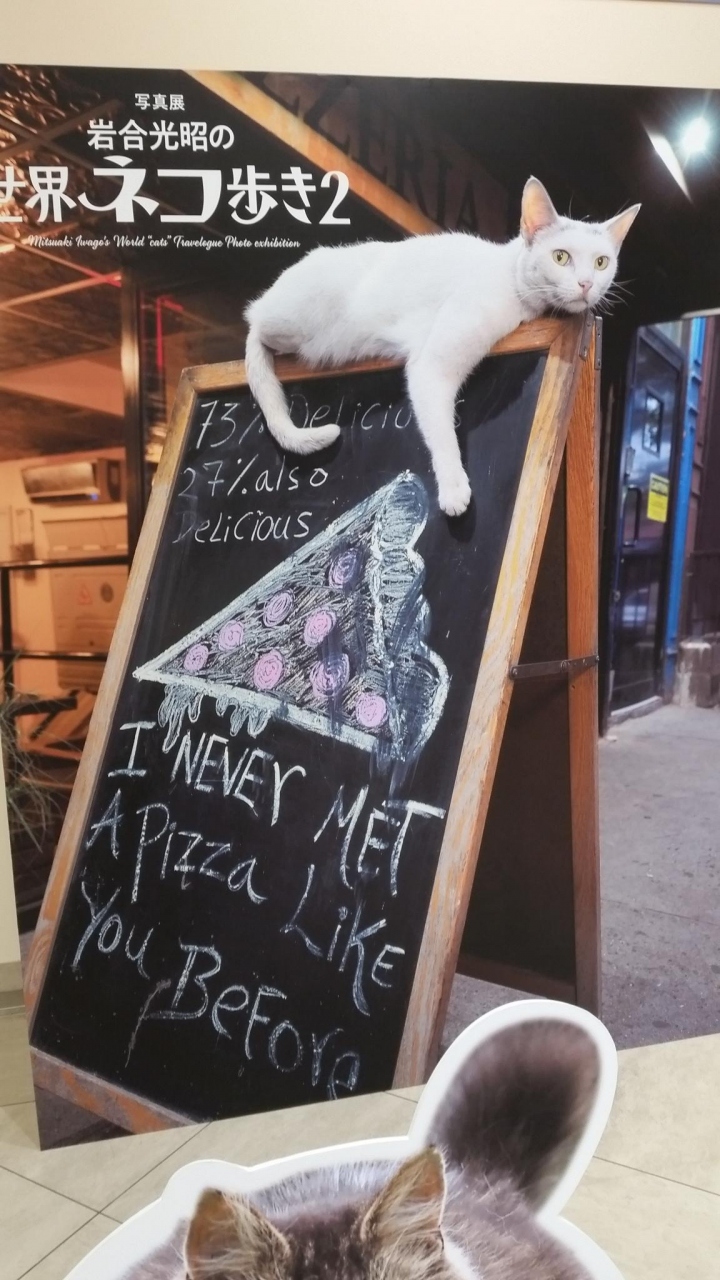 写真展
岩合光昭の
世界ネコ歩き2
Mitsuaki Iwago's World "cats" Travelogue Photo exhibition
73% Delicious
27% also
Delicious
I NEVER MET
A Pizza LIKE
You Before